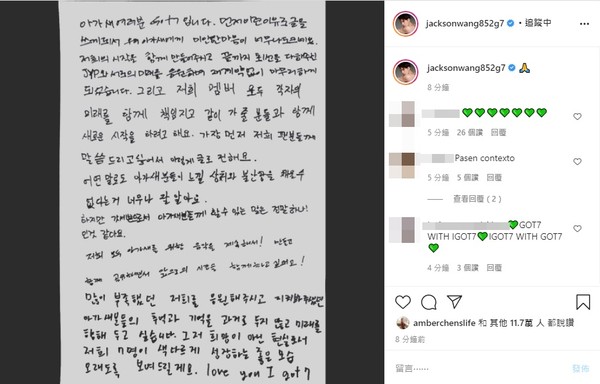 아가새 여러분 GOT7 입니다.
우리 아가새에게 미안한 마음이
저희의 시작을 함께 만들어주시고 끝까지 최선을 다해주신
되었습니다. 그리고 저희 멤버 모두 각자의
미래를 함께 책임지고 같이 가줄 분들과 함께
새로운 시작을 하려고 해요. 가장 먼저 저희 팬분들께
말씀드리고 싶어서 이렇게 글로 전해요.
어떤 말로도 아가새분들이 느낄 상처와 불안감을 채울수
없다는거 너무나 잘 알아요.
하지만
저희 모두 아가새를 위한 음악을 계속해서! 만들고
함께 공유하면서 앞으로의 시간을 함께하고 싶어요!
많이 부족했던 저희를 응원해주시고
아가새분들의 추억과 기억을 과거로 두지 않고 미래를
향해 두고 싶습니다. 그저 희망이 아닌 현실로서
저희 7명이 색다르게 성장하는 좋은 모습
오래도록 보여드릴게요. love you I got7
jacksonwang852g7 • 追蹤中
jacksonwang852g7 🙏
8 分鐘
💚💚💚💚💚💚💚
5 分鐘 26 個讚 回覆
Pasen contexto
5 分鐘 5 個讚 回覆
查看回覆 (2)
💚GOT7
WITH IGOT7💚IGOT7 WITH GOT7
💚
4 分鐘 3 個讚 回覆
amberchenslife 和 其他 11.7萬 人 都說讚
8 分鐘前
留言……
發佈